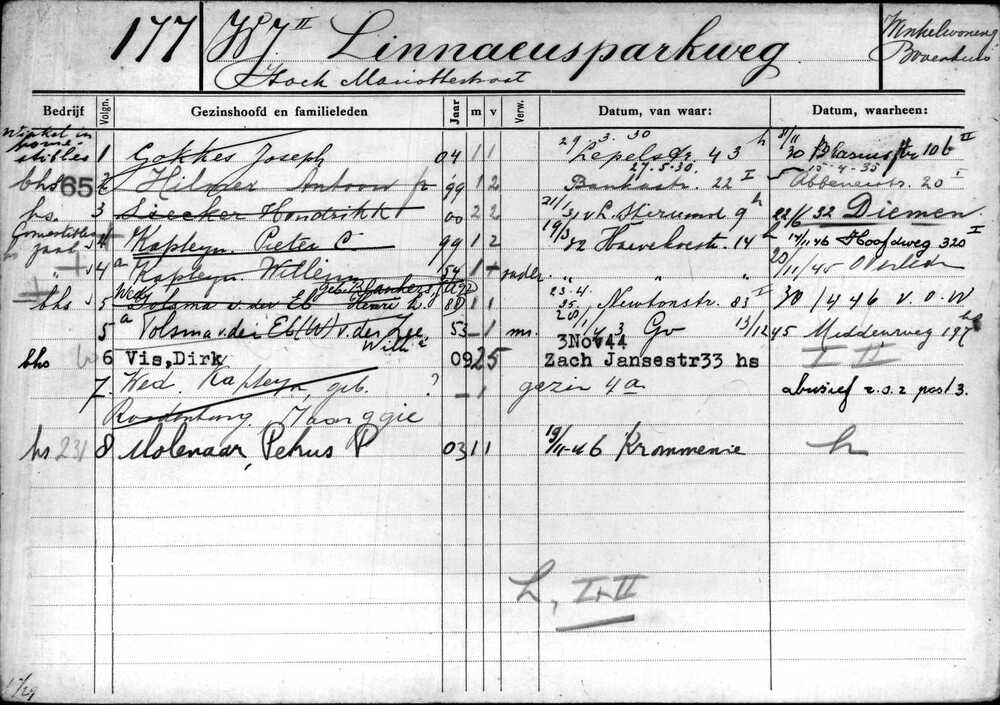 177 W 7 II Linnaeusparkweg Winkelwoning
hoek Mariottestraat Bovenhuis
Bedrijf Volgn. Gezinshoofd en familieleden Jaar m v Verw. Datum, van waar: Datum, waarheen:
Winkel in
1 Gokkes Joseph 04 1 1 29/3.30 Lepelstr. 43 h 8/11 30 Blasiusstr 106 II
27.5.30. 15-4-35
bhs 65 2 Hilmer Antoon jr '99 1 2 Bankastr. 22 I Abbenestr. 20 I
hs. 3 Liecker Hendrik 00 2 2 21/3 31 v. L. Stirumstr 9 h 22/6 32 Diemen
zaal 4 Kapteyn Pieter C. 99 1 2 19/3 32 14 h 14/11 46 Hoofdweg 320 I
" 4a Kapteyn Willem 54 1 - vader " " 20/11/45 Overleden
Wed. geb.
bhs 5 Dolsma v. der Eb 80 1 1 23.4.35 Newtonstr. 83 I 30/4 46 v.O.W
5a Dolsma v. der Eb (W) v. der Zee 53 - 1 ms. 28/1/43 Gv 13/12 45 Middenweg 197 hs
Will 3Nov44
bhs 6 Vis,Dirk 09 2 5 Zach Jansestr33 hs I II
7. Wed. Kapteyn, geb. ? - 1 gezin 4a abusief z.o.z post 3.
Roodenburg Maarggie
hs 231 8 Molenaar, Petrus P 03 1 1 19/11-46 Krommenie h
h, I+II
11/29